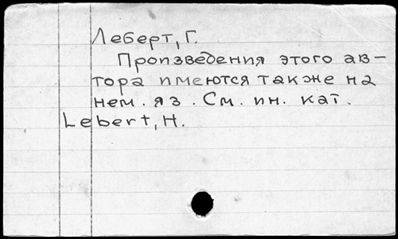 Леберт, Г.
Произведения этого ав-
тора имеются также на
нем. яз. См. ин. кат.
Lebert, H.